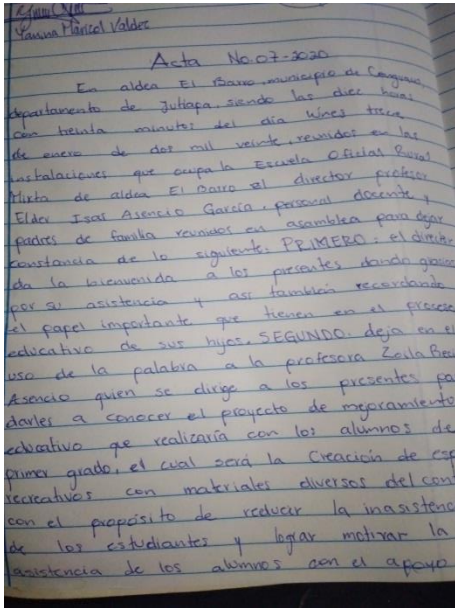 Yanina Maricol Valdez
Acta No. 07-2020
En aldea El Barro, municipio de
departamento de Jutiapa, siendo las diez horas
con treinta minutos del día lunes trece,
de enero de dos mil veinte, reunidos en las
instalaciones que ocupa la Escuela Oficial Rural
Mixta de aldea El Barro el director profesor
Elder Isaí Asencio García, personal docente y
padres de familia reunidos en asamblea para dejar
constancia de lo siguiente: PRIMERO: el director
da la bienvenida a los presentes dando gracias
por su asistencia y así también recordando
el papel importante que tienen en el proceso
educativo de sus hijos. SEGUNDO: deja en el
uso de la palabra a la profesora Zoila
Asencio quien se dirige a los presentes pa
darles a conocer el proyecto de mejoramiento
educativo que realizaría con los alumnos de
primer grado, el cual será la Creación de esp
recreativos con materiales diversos del con
con el propósito de reducir la inasistenc
de los estudiantes y lograr motivar la
asistencia de los alumnos con el apoyo